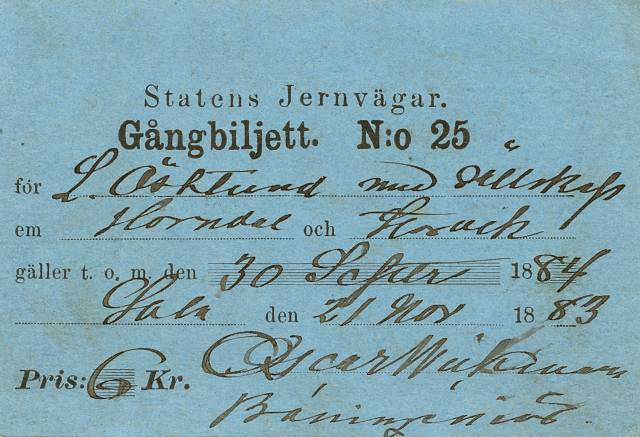 Statens Jernvägar.
Gångbiljett. N:o 25
för L. Östlund med sällskap
em Horndal och Storvik
gäller t. o. m. den 30 Septer 1884
Sala den 21 Nov 1883
Pris: 6 Kr. Oscar Wickman
Baningeniör.